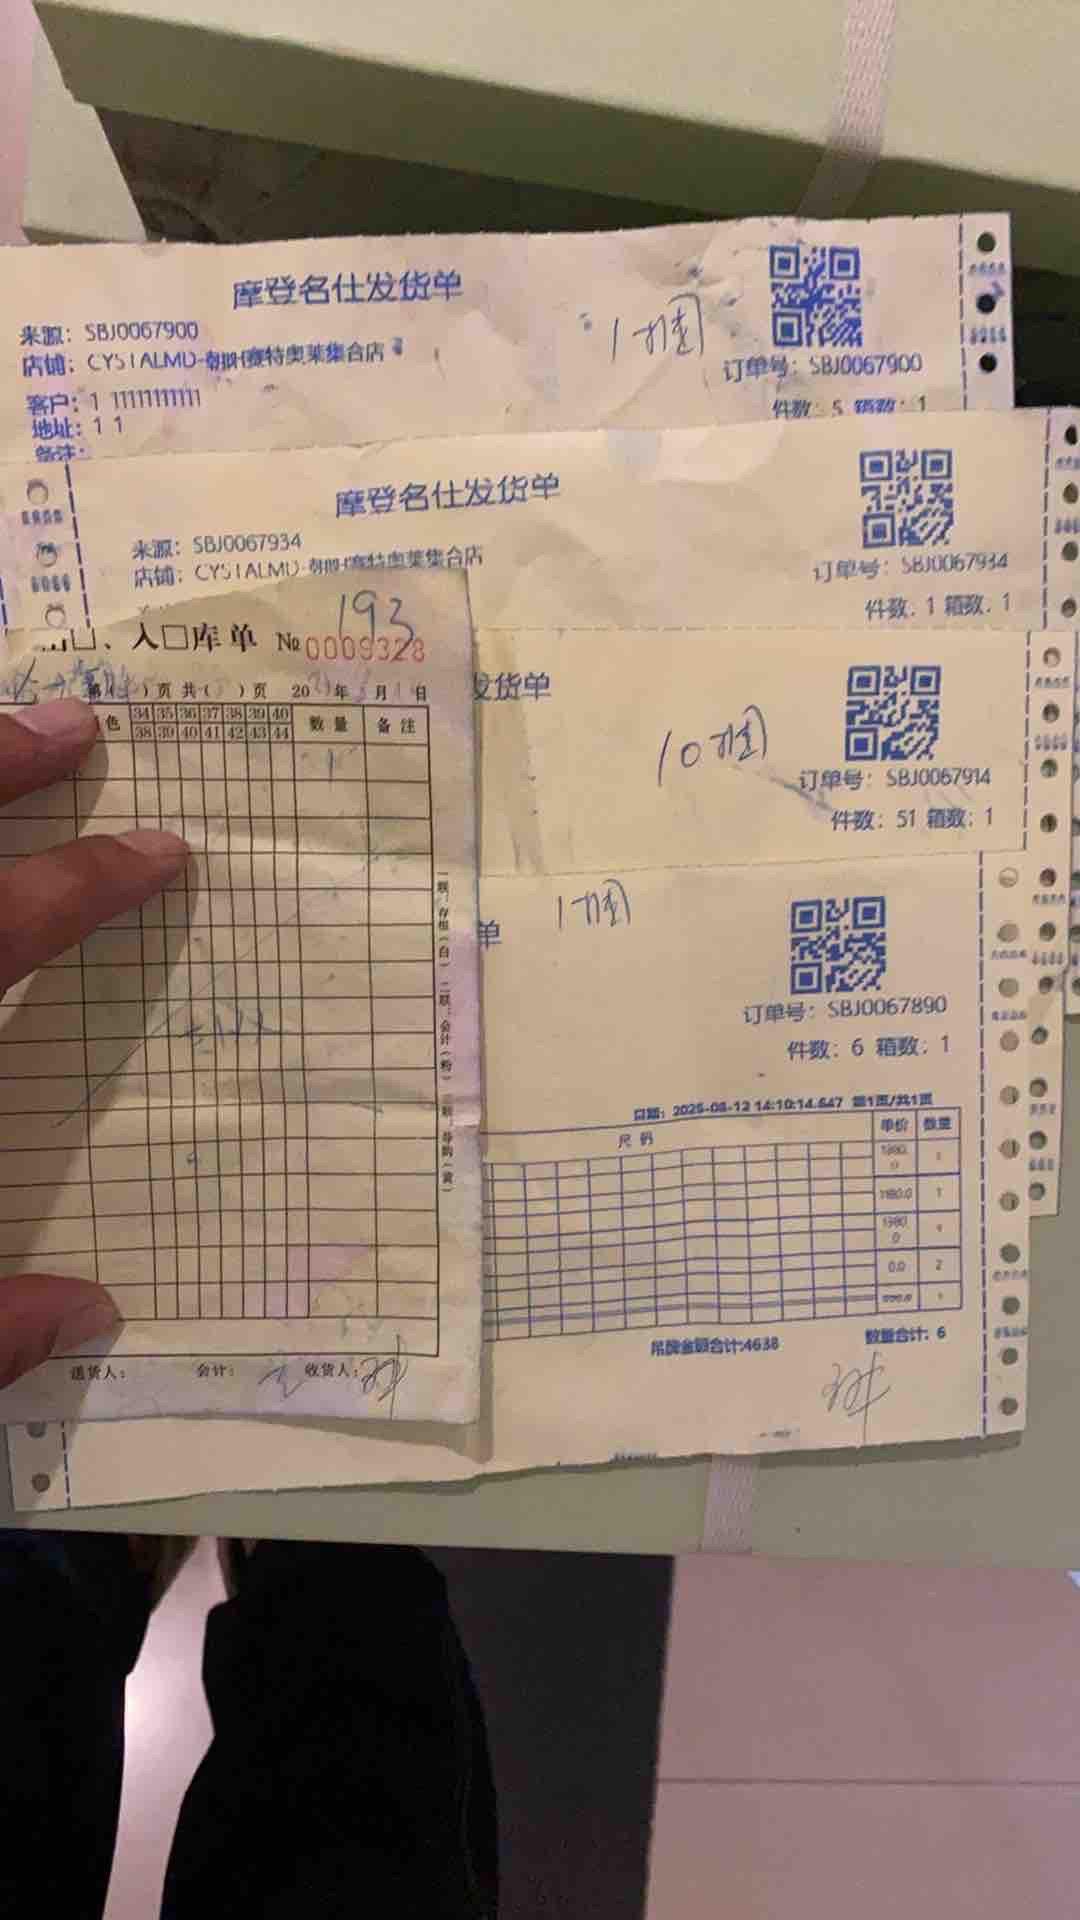 摩登名仕发货单
来源：SBJ0067900
店铺：CYSTALMD-朝阳赛特奥莱集合店
客户：1 11111111111
地址：1 1
备注：
1捆
订单号：SBJ0067900
件数：5 箱数：1
摩登名仕发货单
来源：SBJ0067934
店铺：CYSTALMD-朝阳赛特奥莱集合店
订单号：SBJ0067934
件数：1 箱数：1
发货单
10捆
订单号：SBJ0067914
件数：51 箱数：1
单
1捆
订单号：SBJ0067890
件数：6 箱数：1
日期：2025-08-12 14:10:14.647 第1页/共1页
尺码 单价 数量
1180.0 1
0.0 2
吊牌金额合计:4638 数量合计：6
193
、入口库单 № 0009328
第( )页 共( )页 20 年 月 日
色 34 35 36 37 38 39 40 数量 备注
38 39 40 41 42 43 44
一联：存根（白） 二联：会计（粉） 三联：导购（黄）
送货人： 会计： 收货人：